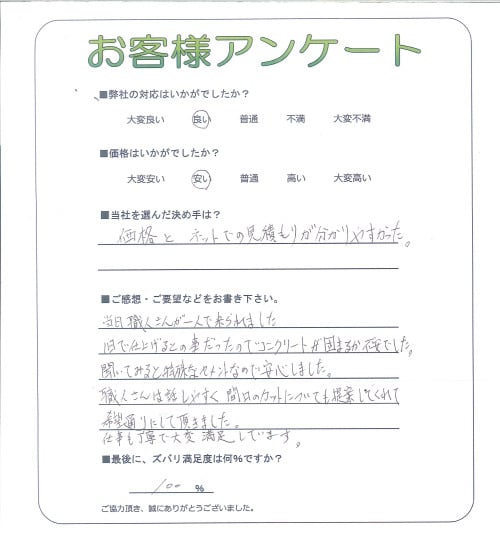 お客様アンケート
■弊社の対応はいかがでしたか？
大変良い 良い 普通 不満 大変不満
■価格はいかがでしたか？
大変安い 安い 普通 高い 大変高い
■当社を選んだ決め手は？
価格と ネットでの見積もりが分かりやすかった。
■ご感想・ご要望などをお書き下さい。
当日職人さんが一人で来られました
1日で仕上げるとの事だったのでコンクリートが固まるか不安でした。
聞いてみると特殊なセメントなので安心しました。
職人さんは話しやすく 間口のカットについても提案してくれて
希望通りにして頂きました。
仕事も丁寧で大変 満足しています。
■最後に、ズバリ満足度は何％ですか？
100 ％
ご協力頂き、誠にありがとうございました。